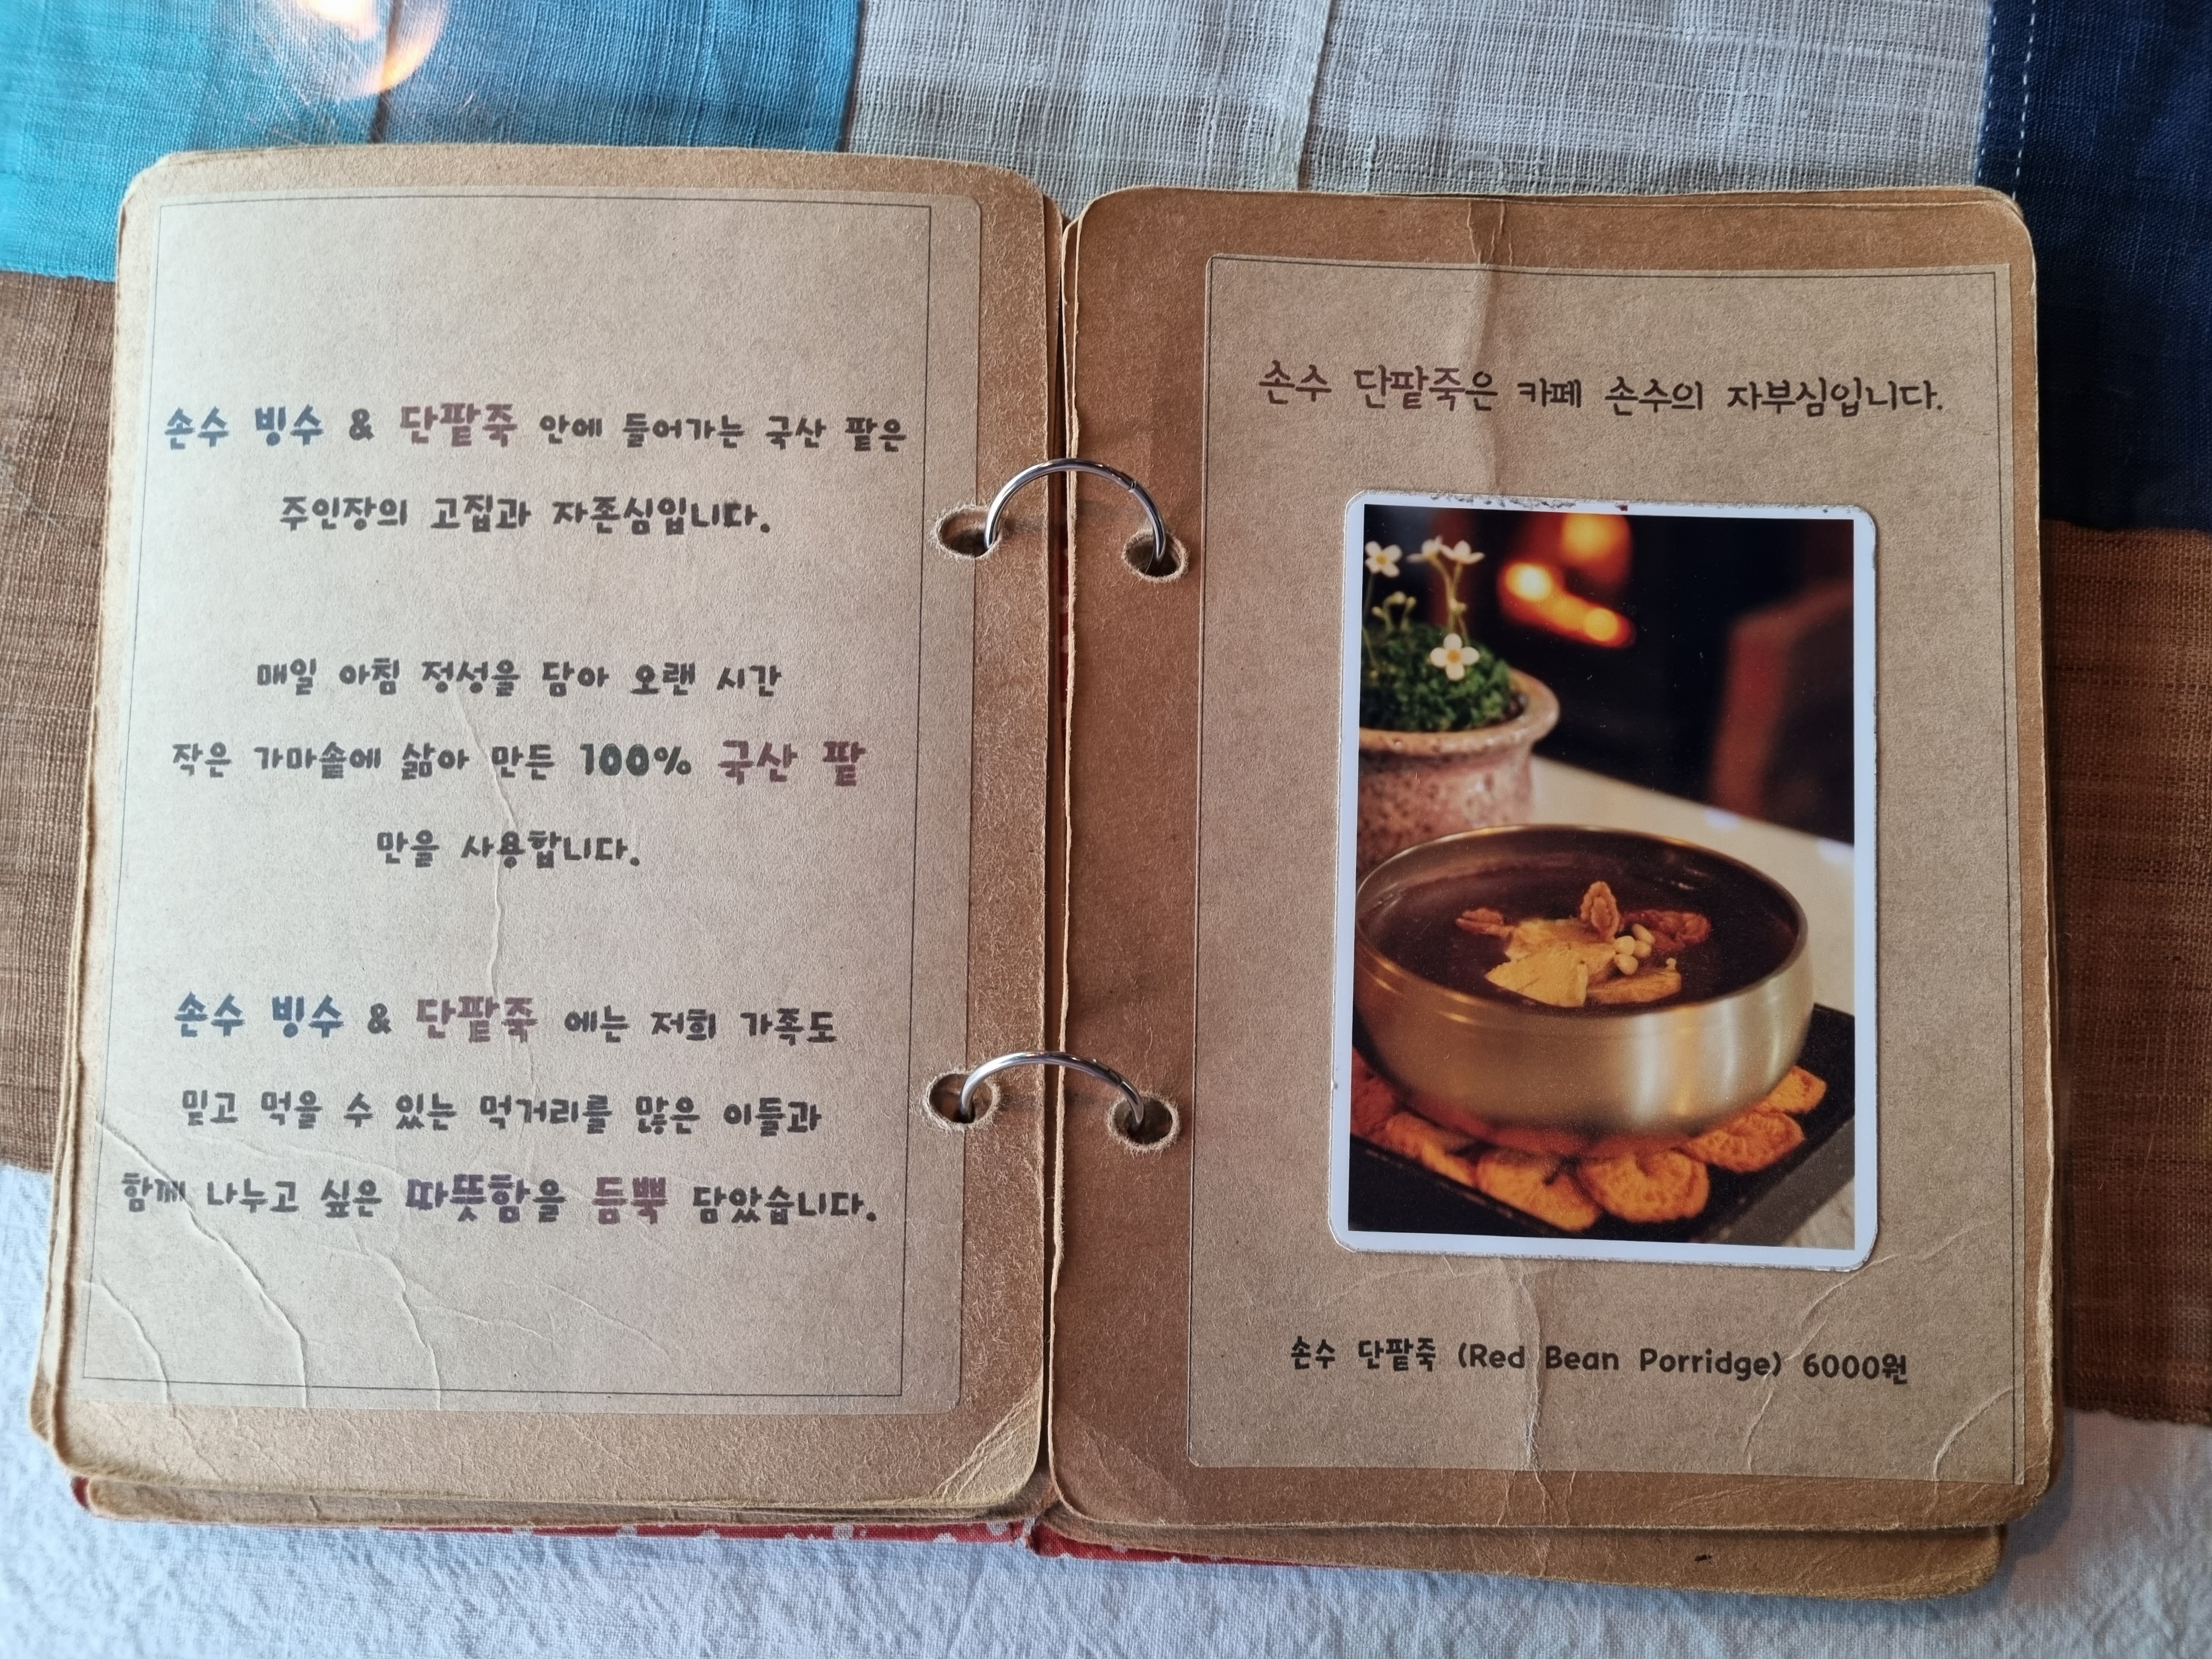 손수 빙수 & 단팥죽 안에 들어가는 국산 팥은
주인장의 고집과 자존심입니다.
매일 아침 정성을 담아 오랜 시간
작은 가마솥에 삶아 만든 100% 국산 팥
만을 사용합니다.
손수 빙수 & 단팥죽 에는 저희 가족도
믿고 먹을 수 있는 먹거리를 많은 이들과
함께 나누고 싶은 따뜻함을 듬뿍 담았습니다.
손수 단팥죽은 카페 손수의 자부심입니다.
손수 단팥죽 (Red Bean Porridge) 6000원